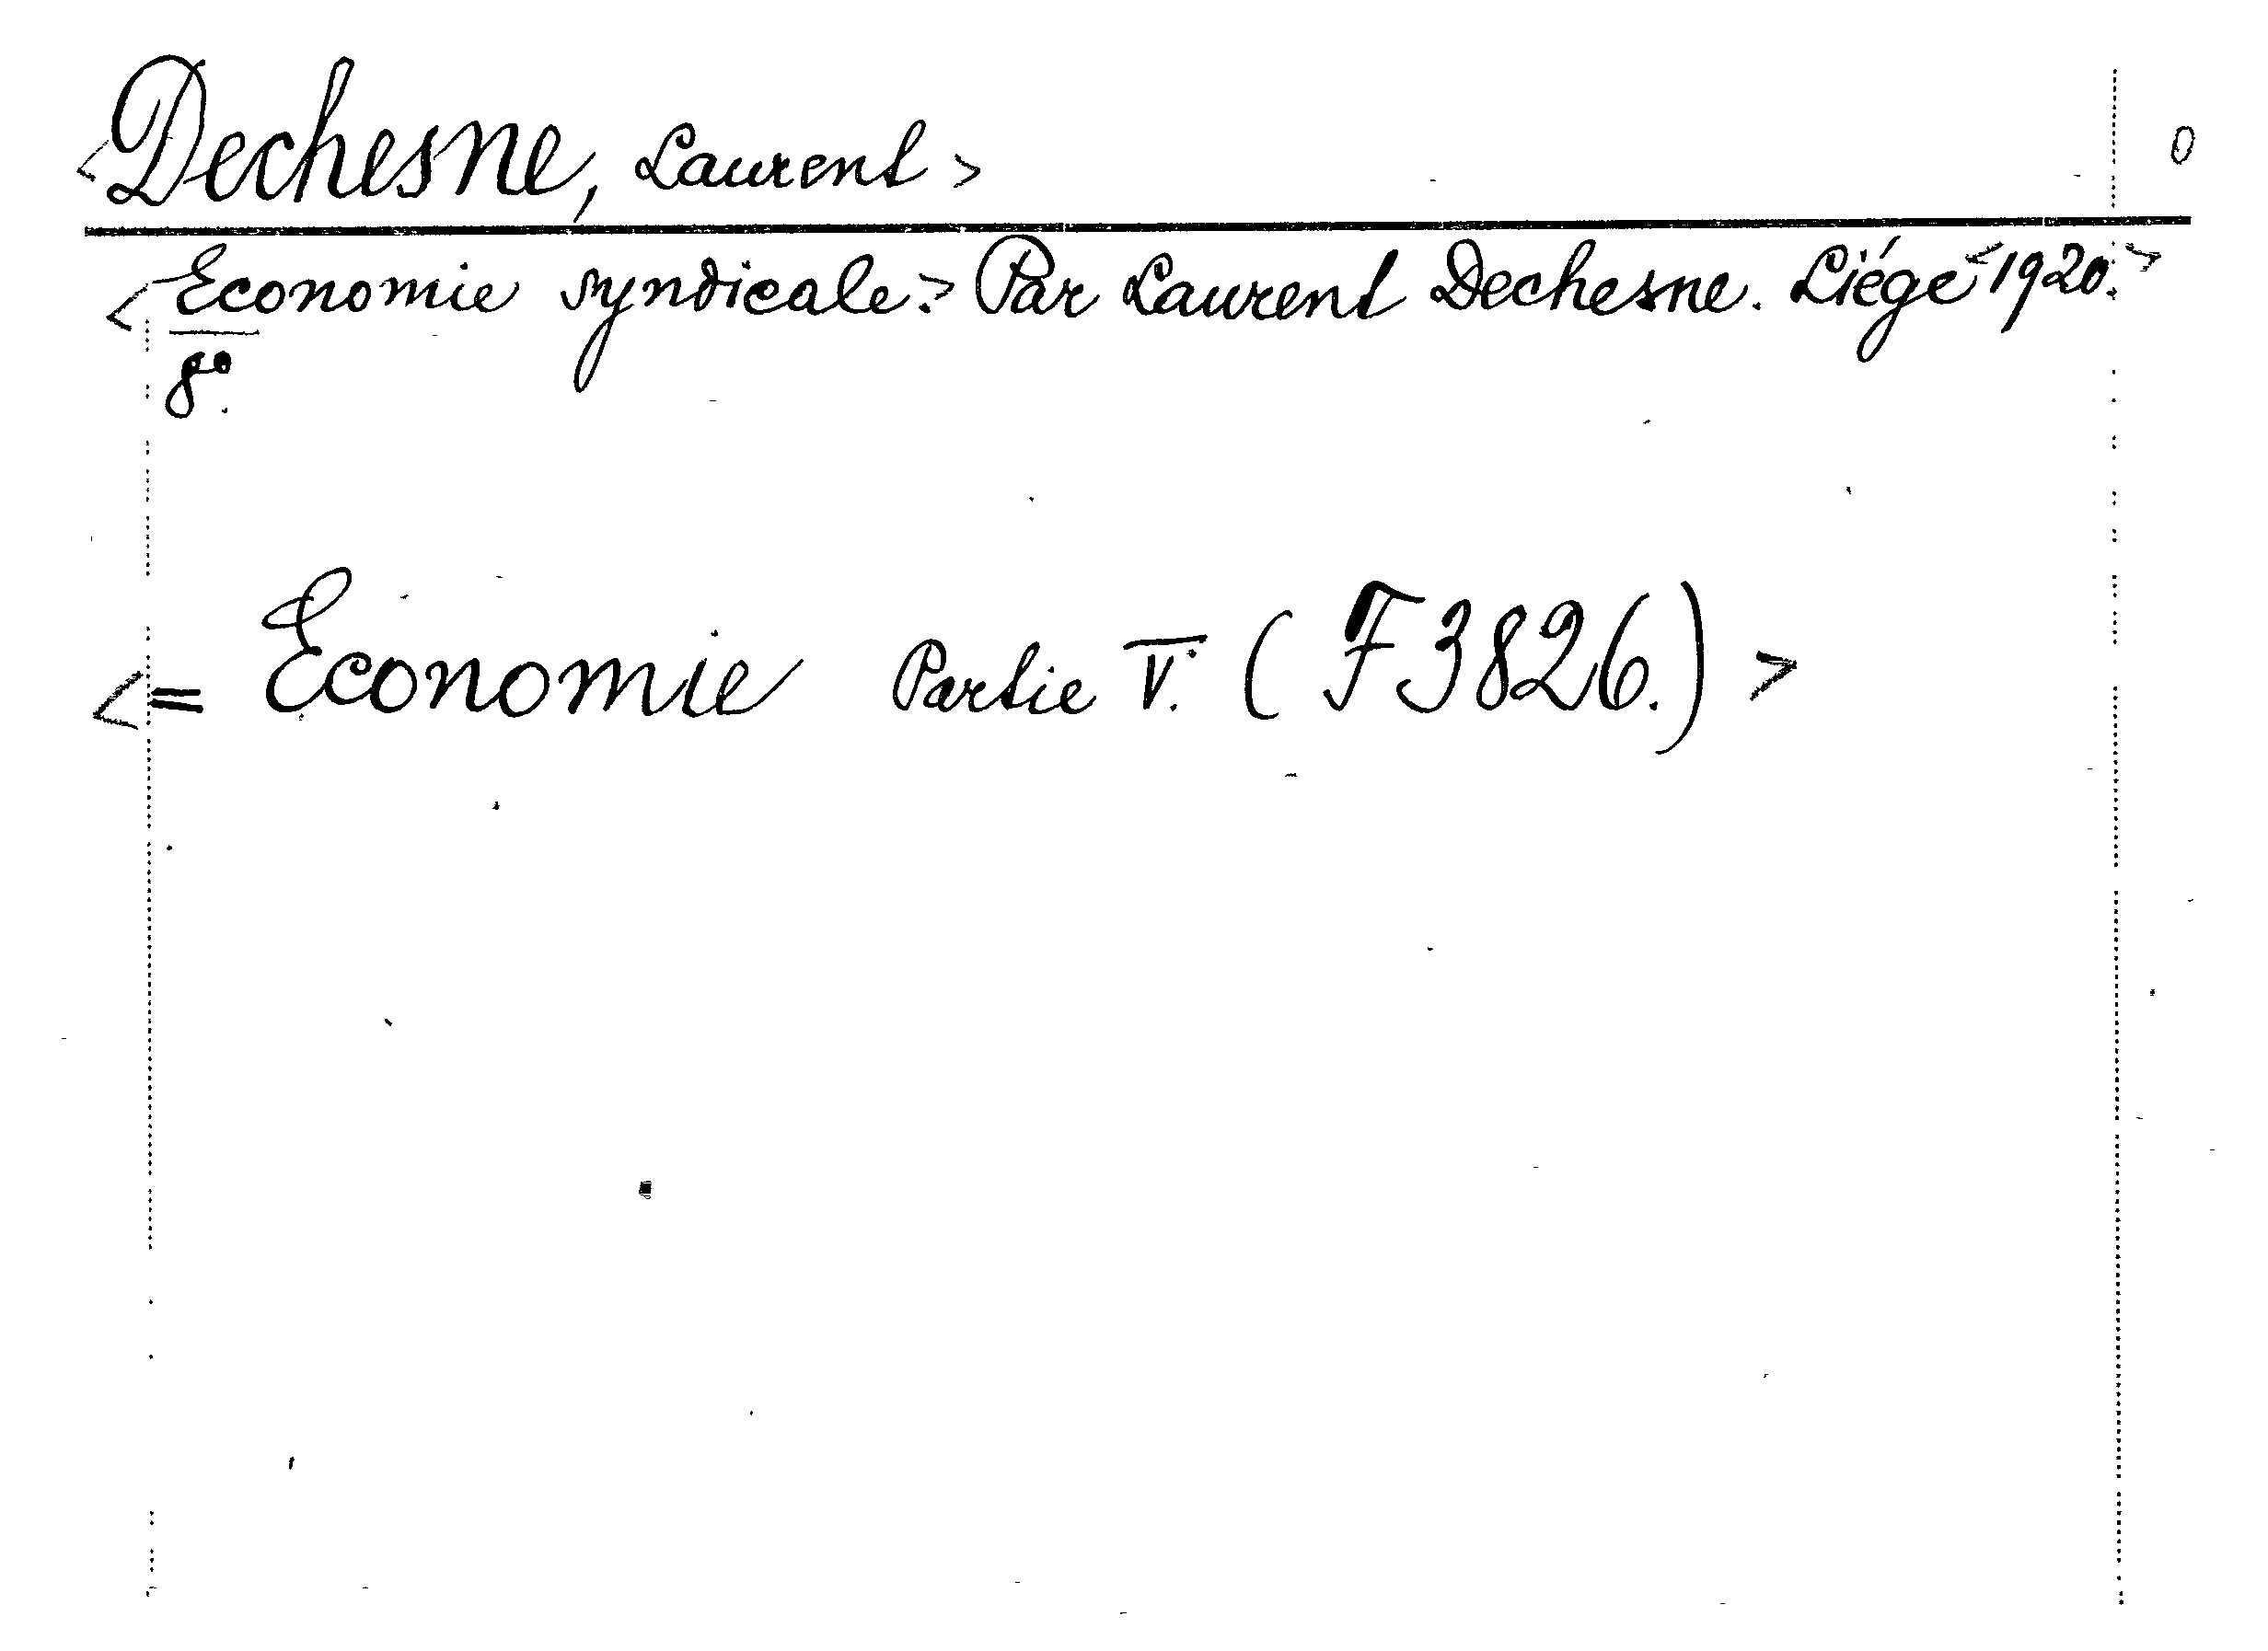 <Dechesne, Laurent> 0
<Economie syndicale.> Par Laurent Dechesne. Liége <1920.>
8°.
<= Economie Partie V. (F3826.)>